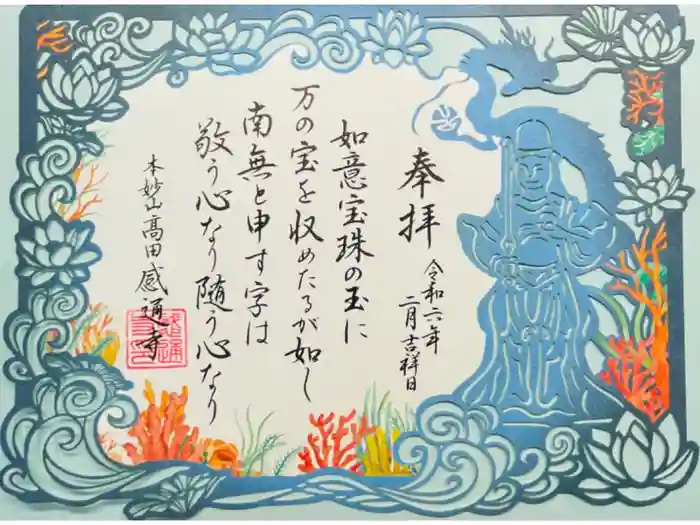 奉拝
令和六年
二月吉祥日
如意宝珠の玉に
万の宝を収めたるが如し
南無と申す字は
敬う心なり随う心なり
本妙山高田感通寺